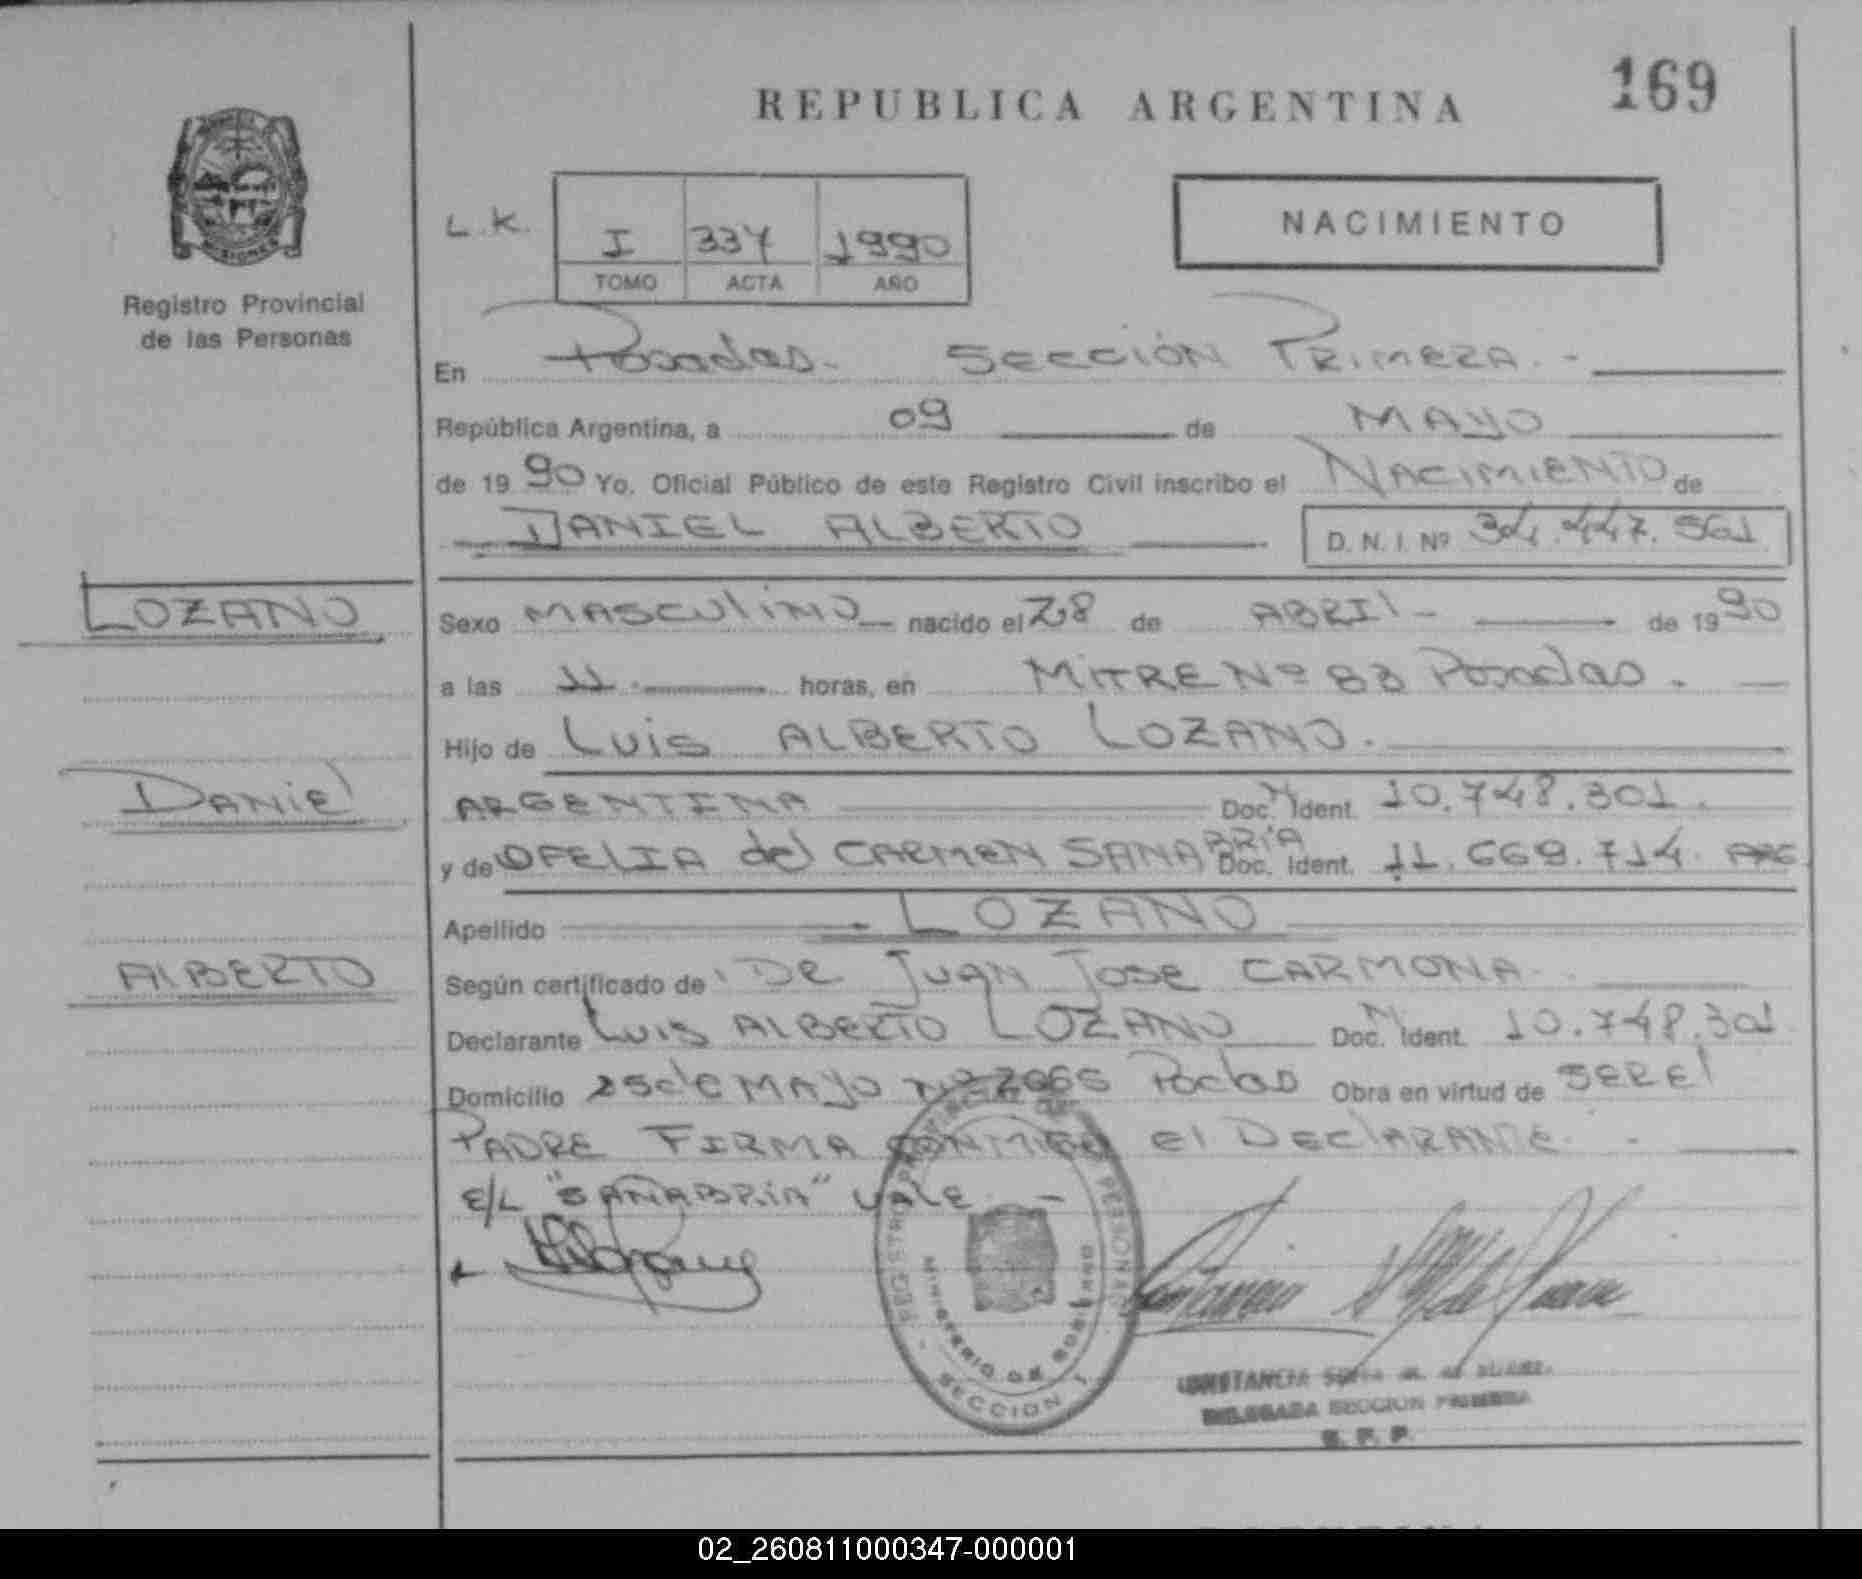 169
REPUBLICA ARGENTINA
NACIMIENTO
L.K. I 337 1990
TOMO ACTA AÑO
MISIONES
Registro Provincial
de las Personas
En Posadas - SECCIÓN PRIMERA. -
República Argentina, a 09 de MAYO
de 19 90 Yo, Oficial Público de este Registro Civil inscribo el NACIMIENTO de
DANIEL ALBERTO D. N. I. Nº 34.447.561
LOZANO
Sexo MASCULINO nacido el 28 de ABRIL - de 19 90
a las 11 - horas, en MITRE Nº 83 Posadas. -
Hijo de LUIS ALBERTO LOZANO.
DANIEL
ARGENTINA Doc. N Ident. 10.748.301.
y de OFELIA del CARMEN SANABRIA Doc. Ident. 11.669.714. ARG
Apellido LOZANO
ALBERTO
Según certificado de DE JUAN JOSE CARMONA
Declarante LUIS ALBERTO LOZANO Doc. N Ident. 10.748.301
Domicilio 25 de MAYO Nº 2066 Pdas Obra en virtud de SER El
PADRE FIRMA CONMIGO El DECLARANTE. -
E/L "SANABRIA" VALE. -
REGISTRO PROVINCIAL DE LAS PERSONAS
MINISTERIO DE GOBIERNO
SECCION 1
CONSTANCIA SOFIA M. de SUAREZ
DELEGADA SECCION PRIMERA
R. P. P.
02_260811000347-000001